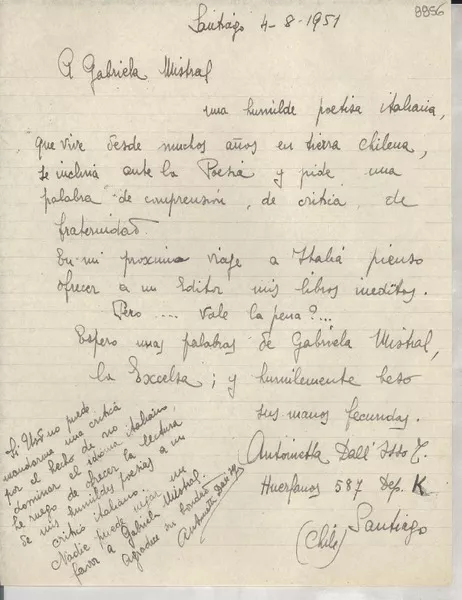 8856
Santiago 4-8-1951
A Gabriela Mistral
una humilde poetisa italiana,
que vive desde muchos años en tierra chilena,
se inclina ante la Poesia y pide una
palabra de comprensión, de critica, de
fraternidad.
En mi proximo viaje a Italia pienso
ofrecer a un Editor mis libros ineditos.
Pero .... vale la pena?...
Espero unas palabras de Gabriela Mistral,
la Excelsa; y humilemente beso
sus manos fecundas.
Antonietta Dall'
Huerfanos 587 Dep. K
Santiago
(Chile)
Si Usted no puede
mandarme una critica
por el hecho de no
dominar el idioma italiano,
le ruego de ofrecer la lectura
de mis humildes poesias a un
critico italiano.
Nadie puede negar un
favor a Gabriela Mistral.
Agradece su bondad